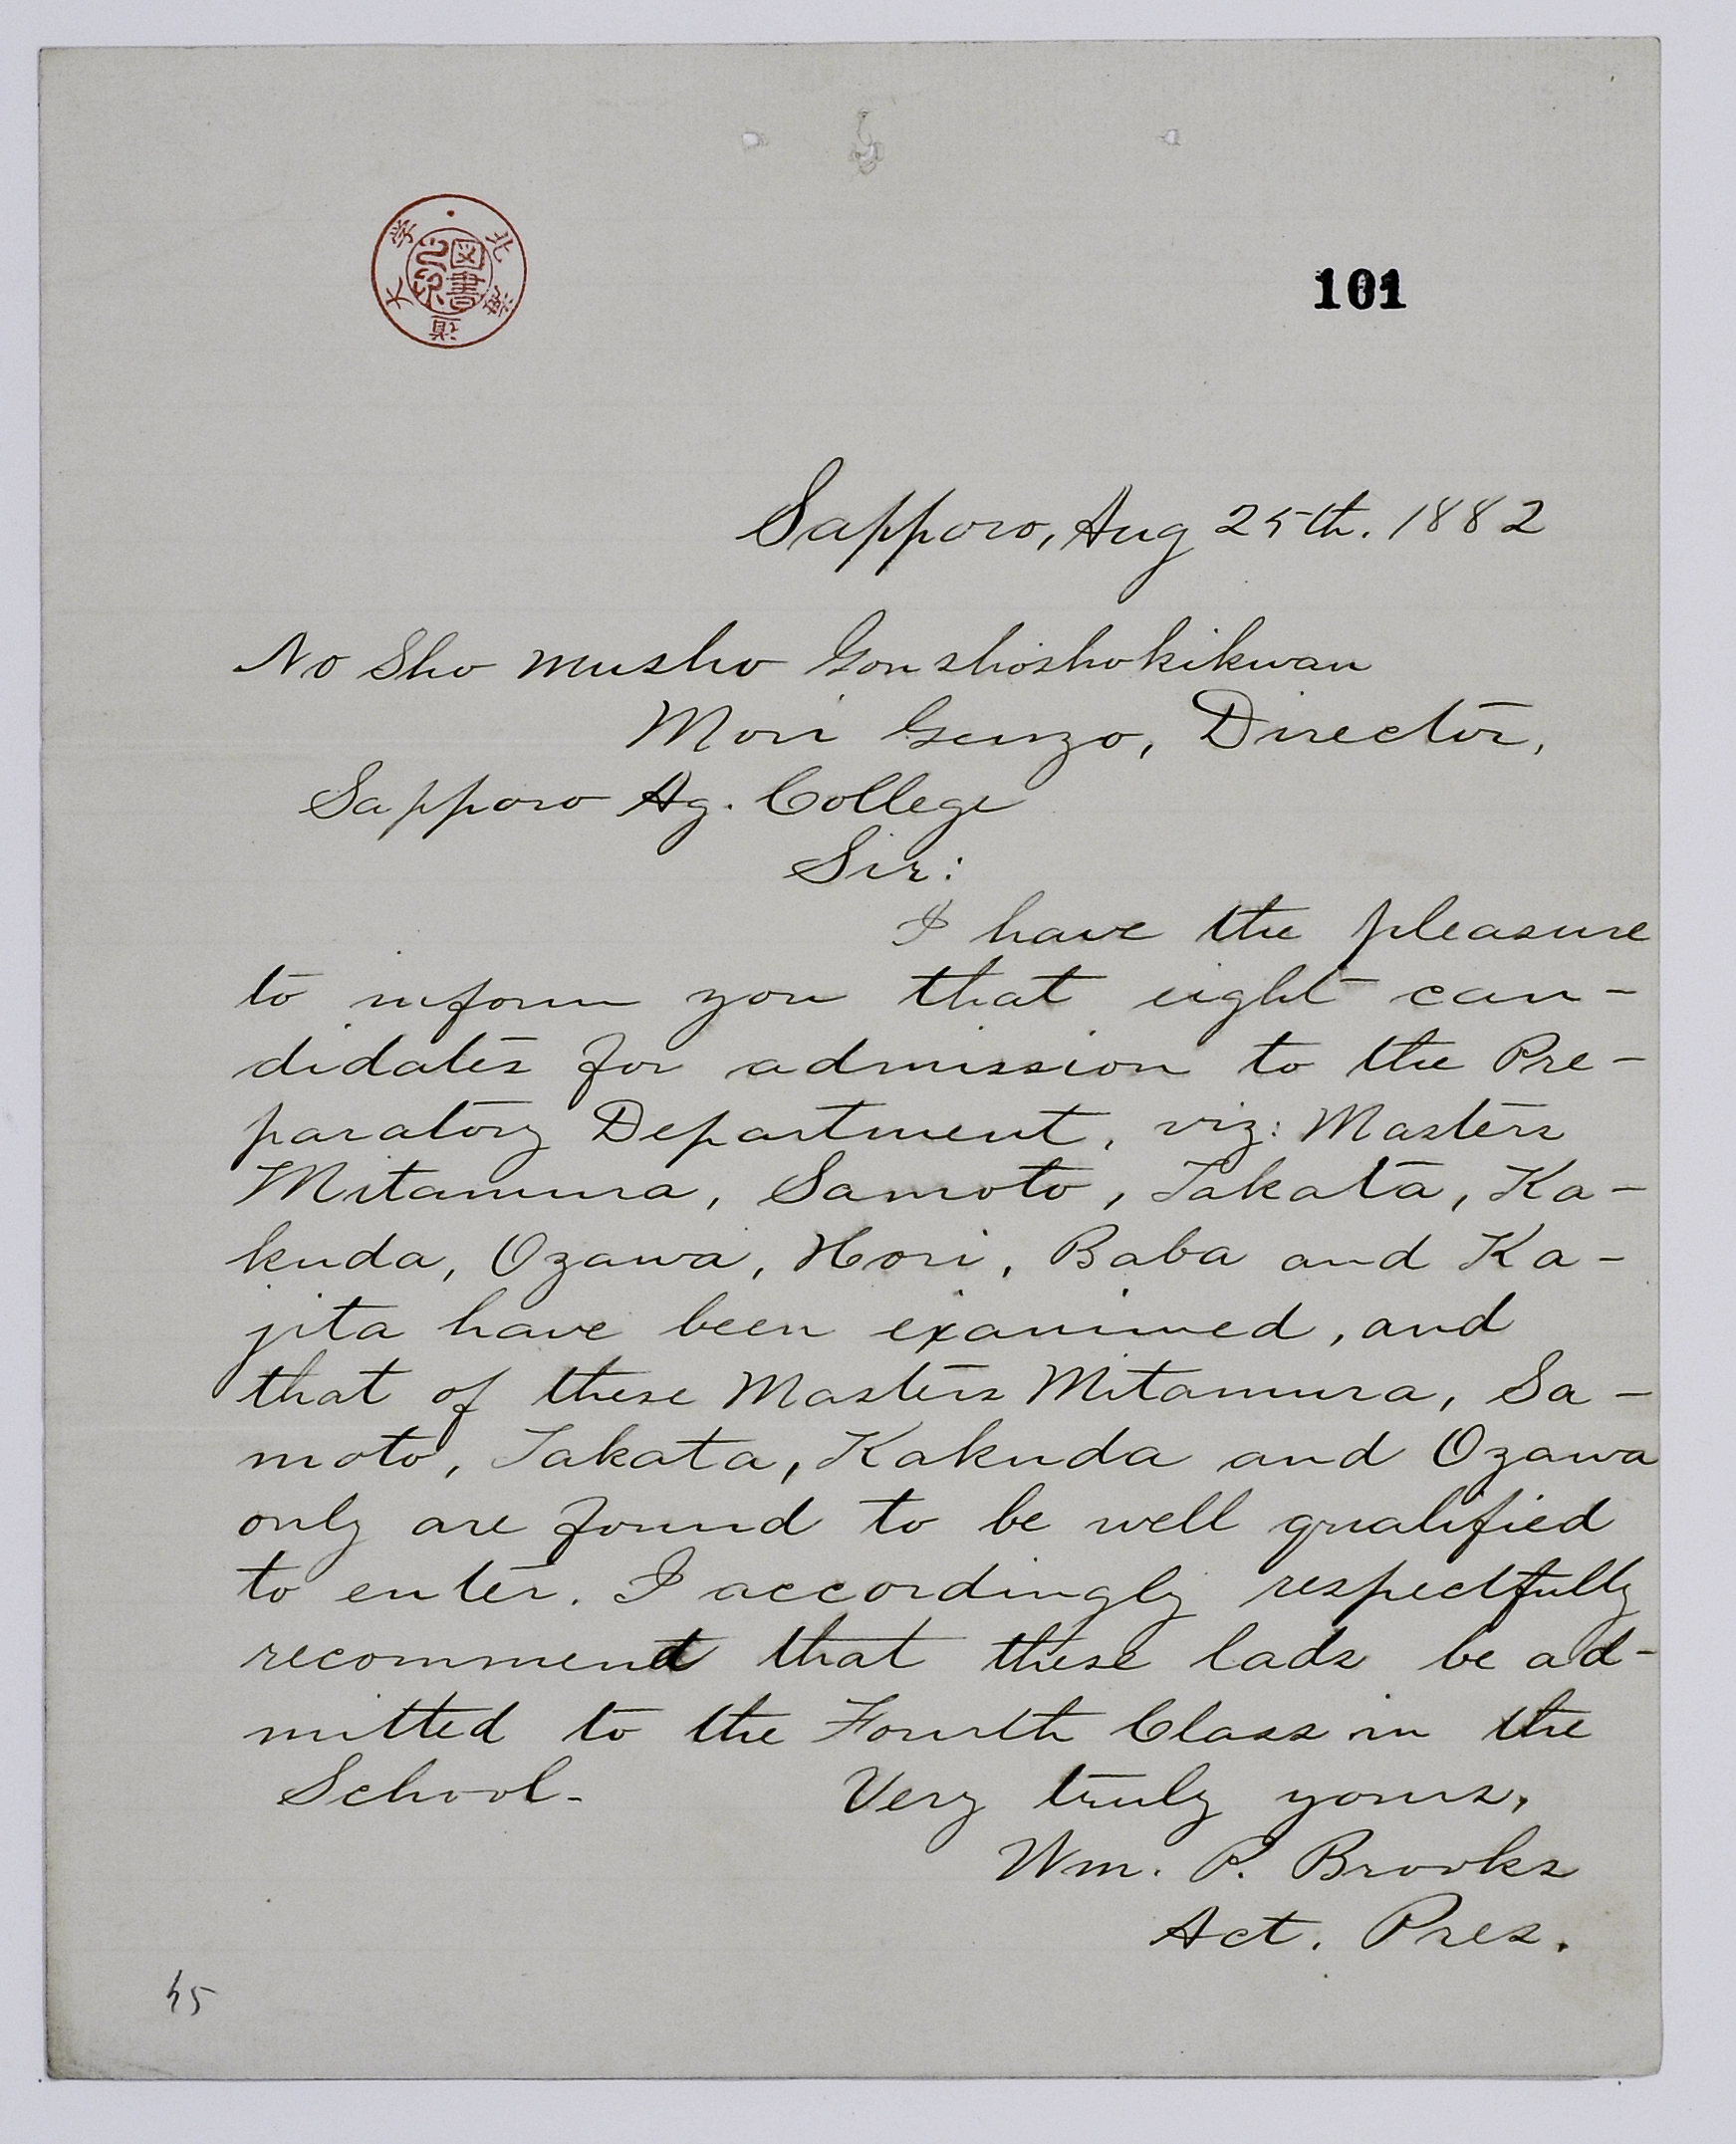 北海道大学
図書之印
101
Sapporo, Aug 25th. 1882
No Sho musho Gon shoshokikwan
Mori Genzo, Director,
Sapporo Ag. College
Sir:
I have the pleasure
to inform you that eight can-
didates for admission to the Pre-
paratory Department, viz: Masters
Mitamura, Samoto, Takata, Ka-
kuda, Ozawa, Hori, Baba and Ka-
jita have been examined, and
that of these Masters Mitamura, Sa-
moto, Takata, Kakuda and Ozawa
only are found to be well qualified
to enter. I accordingly respectfully
recommend that these lads be ad-
mitted to the Fourth Class in the
School.
Very truly yours,
Wm. P. Brooks
Act. Pres.